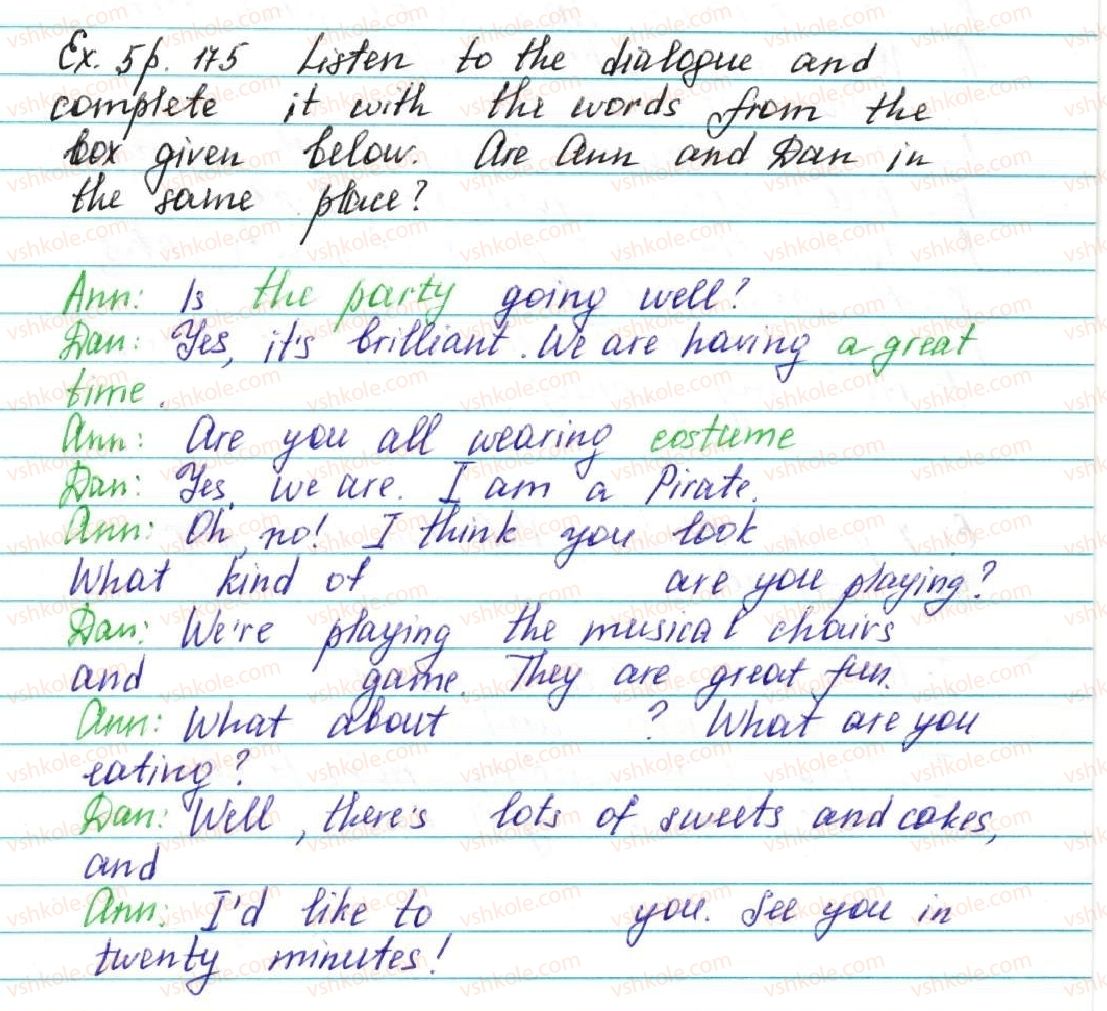 Ex. 5 p. 175 Listen to the dialogue and
complete it with the words from the
box given below. Are Ann and Dan in
the same place?
Ann: Is the party going well?
Dan: Yes, it's brilliant. We are having a great
time.
Ann: Are you all wearing costume
Dan: Yes, we are. I am a Pirate.
Ann: Oh, no! I think you look
What kind of are you playing?
Dan: We're playing the musical chairs
and game. They are great fun.
Ann: What about ? What are you
eating?
Dan: Well, there's lots of sweets and cakes,
and
Ann: I'd like to you. See you in
twenty minutes!
vshkole.com